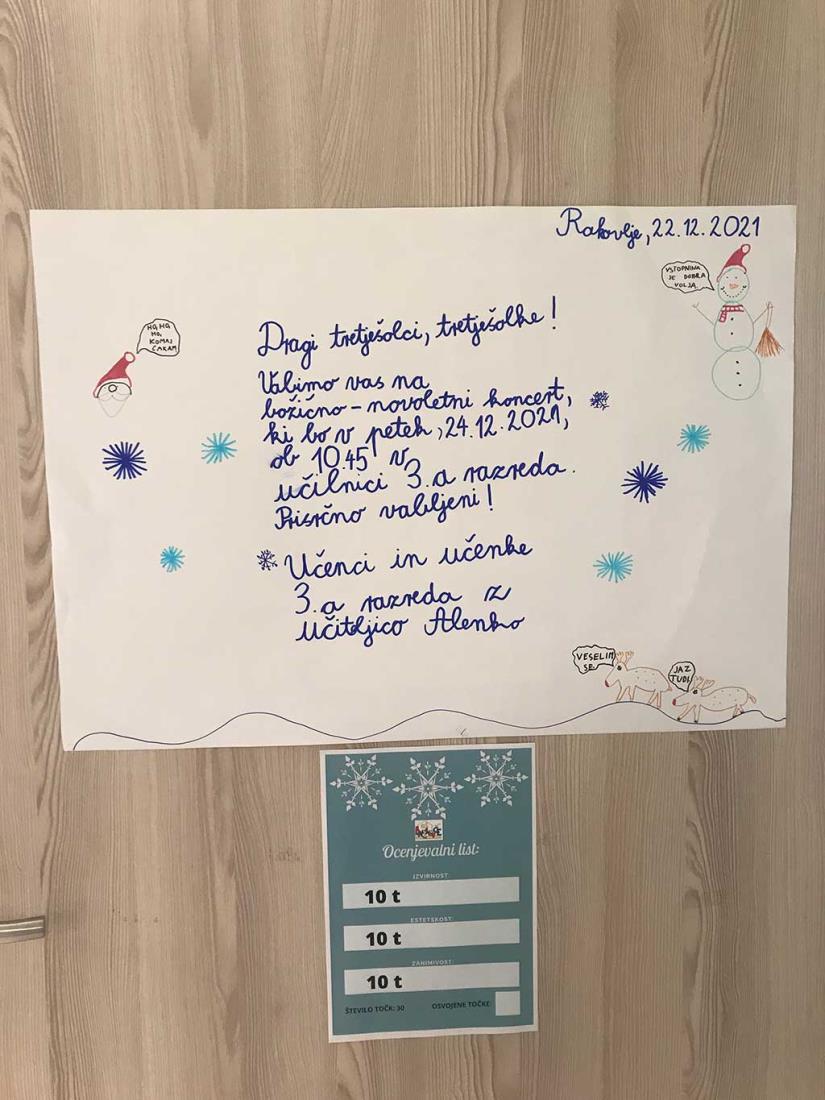 Rakovlje, 22.12.2021
VSTOPNINA
JE DOBRA
VOLJA
HO, HO,
HO,
KOMAJ
ČAKAM
Dragi tretješolci, tretješolke!
Vabimo vas na
božično-novoletni koncert,
ki bo v petek, 24.12.2021,
ob 10.45 v
učilnici 3.a razreda.
Prisrčno vabljeni!
Učenci in učenke
3.a razreda z
učiteljico Alenko
VESELIM
SE
JAZ
TUDI
Ocenjevalni list:
IZVIRNOST:
10 t
ESTETSKOST:
10 t
ZANIMIVOST:
10 t
ŠTEVILO TOČK: 30 OSVOJENE TOČKE: